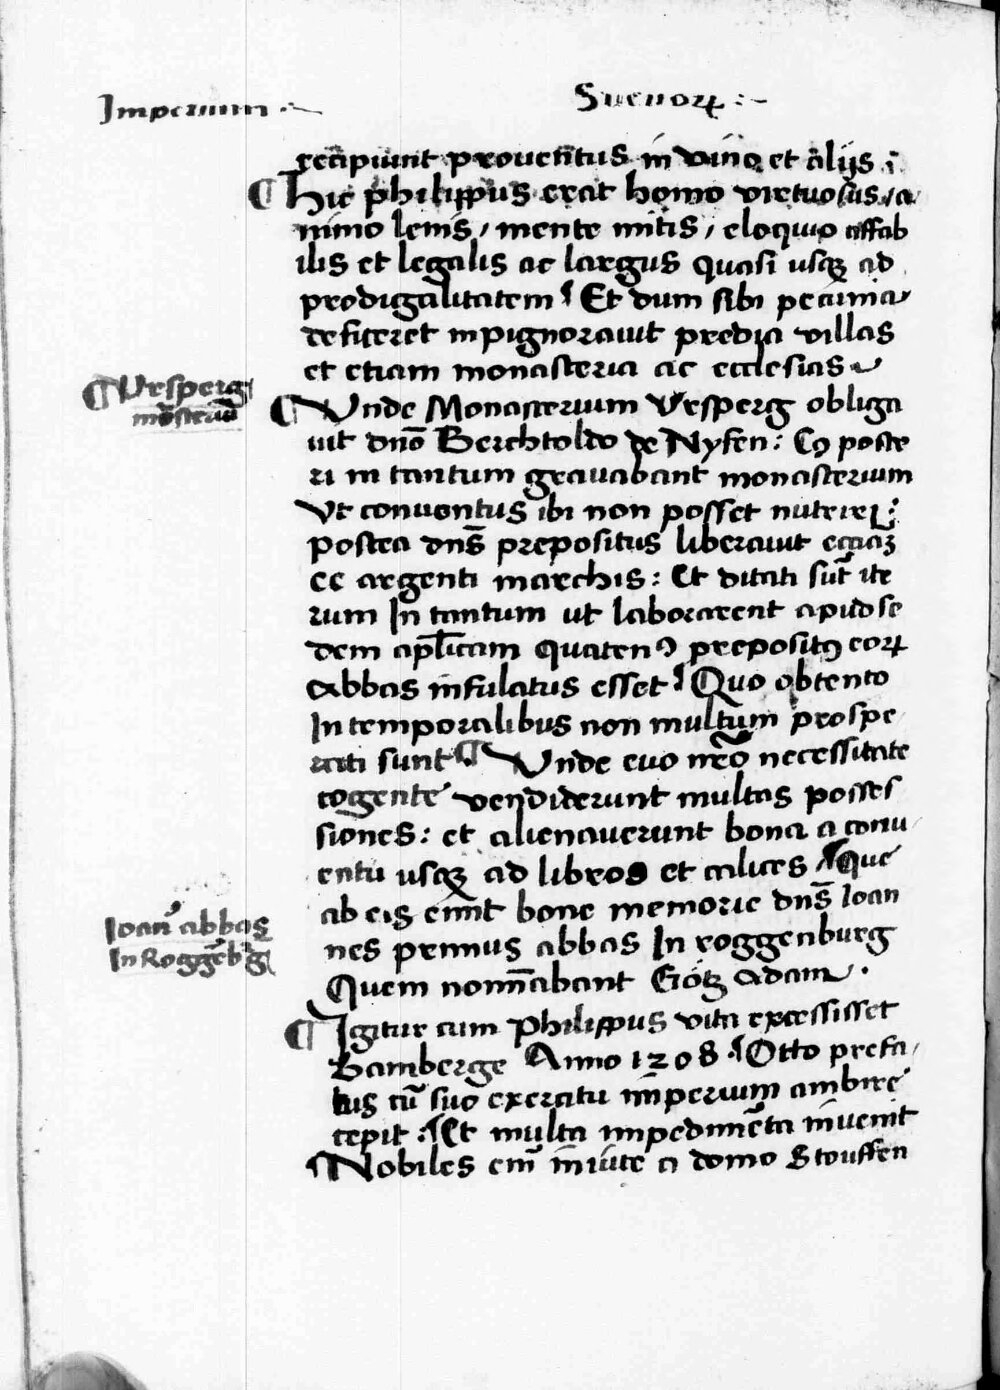 Imperium
Suevoꝝ
recipiunt proventus in vino et alijs
¶ Hic philippus erat homo virtuosus, a
nimo lenis, mente mitis, eloquio affab
ilis et legalis ac largus quasi usqꝫ ad
prodigalitatem ¶ Et dum sibi pecunia
deficeret inpignoravit predia villas
et etiam monasteria ac ecclesias
¶ Vrsperg
mōsteriū
¶ Unde Monasterium Vrsperg obliga
vit dnō Berchtoldo de Nyfen: Cꝰ poste
ri in tantum gravabant monasterium
Ut conventus ibi non posset nutriri:
Postea dns̄ prepositus liberavit ecciaꝫ
cc argenti marchis: Et ditati sūt ite
rum In tantum ut laborarent apud se
dem aplicam quatenꝰ prepositꝰ eorꝝ
Abbas infulatus esset ¶ Quo obtento
In temporalibus non multum prospe
rati sunt ¶ Unde evo nrō necessitate
cogente vendiderunt multas posses
siones: et alienaverunt bona a conv
entu usqꝫ ad libros et calices ¶ Que
ab eis emit bone memorie dns̄ Ioan
nes primus abbas In roggenburg
Ioan̄ abbas
In Roggēb'g
Quem nomīabant Götz Adam.
¶ Igitur cum Philippus vita excessisset
Bamberge Anno 1208 ¶ Otto prefa
tus cū suo exercitu imperium ambire
cepit: ¶ Et multa impedimēta invenit
Nobiles em̄ inviite a domo Stouffen